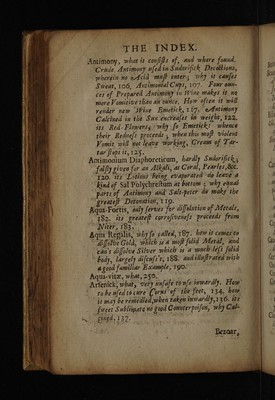 THE INDEX.
Antimony, what it consists of, and where found.
Crude Antimony used in Sudorifick Decoctions,
wherein no Acid must enter; why it causes
Sweat, 106. Antimonial Cups, 107. Four oun-
ces of Prepared Antimony in Wine makes it no
more Vomitive than an ounce. How often it will
render new Wine Emetick, 117. Antimony
Calcined in the Sun encreases in weight, 122.
its Red Flowers, why so Emetick? whence
their Redness proceeds; when this most violent
Vomit will not leave working, Cream of Tar-
tar stops it, 125.
Actimonium Diaphoreticum, hardly Sudorifick;
falsly given for an Alkali, as Coral, Pearles, &c.
120. its Lotions being evaporated do leave a
kind of Sal Polychrestum at bottom; why equal
parts of Antimony and Salt-peter do make the
greatest Detonation, 119.
Aqua-Fortis, only serves for dissolution of Metals,
182. its greatest corrosiveness proceeds from
Niter, 183.
Aqua Regalis, why so called, 187. how it comes to
dissolve Gold, which is a most solid Metal, and
can't dissolve Silver which is a much less solid
body, largely discuss't, 188. and illustrated with
a good familiar Example, 190.
Aqua-vitæ, what, 250.
Arsenick, what, very unsafe to use inwardly. How
to be used to cure Corns of the feet, 134. how
it may be remedied, when taken inwardly, 136. its
sweet Sublimate no good Counterpoison, why Cal-
cined. 137.
Bezoar,